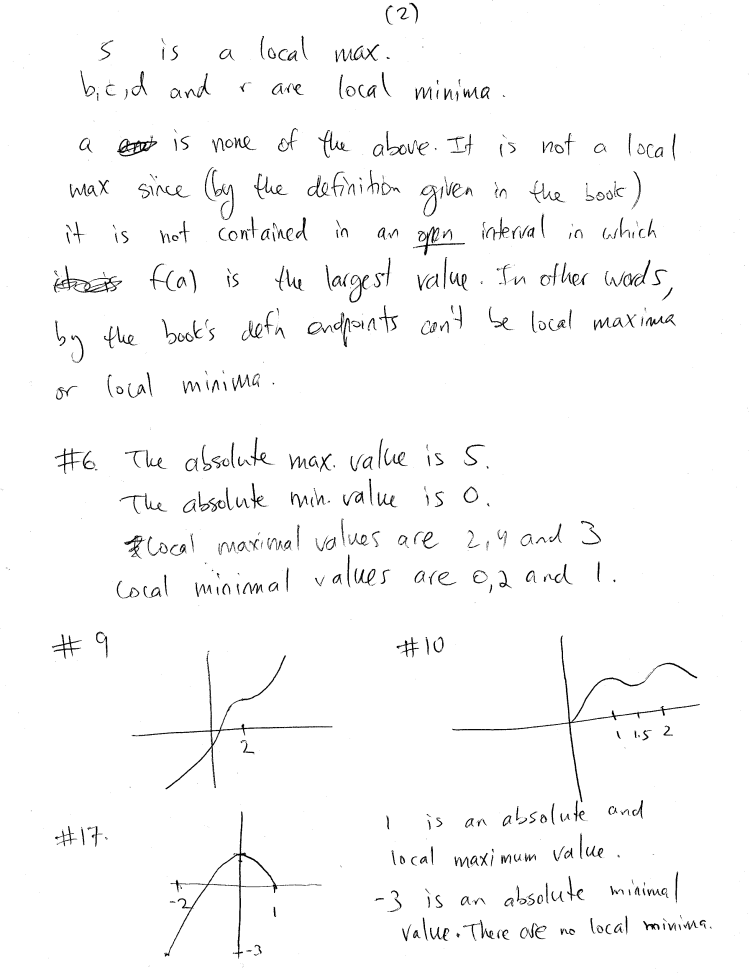 (2)
s is a local max.
b, c, d and r are local minima.
a is none of the above. It is not a local
max since (by the definition given in the book)
it is not contained in an open interval in which
f(a) is the largest value. In other words,
by the book's def'n endpoints can't be local maxima
or local minima.
#6. The absolute max. value is 5.
The absolute min. value is 0.
Local maximal values are 2, 4 and 3
Local minimal values are 0, 2 and 1.
#9
#10
2
1 1.5 2
#17.
1 is an absolute and
local maximum value.
-2 1
-3 is an absolute minimal
value. There are no local minima.
-3